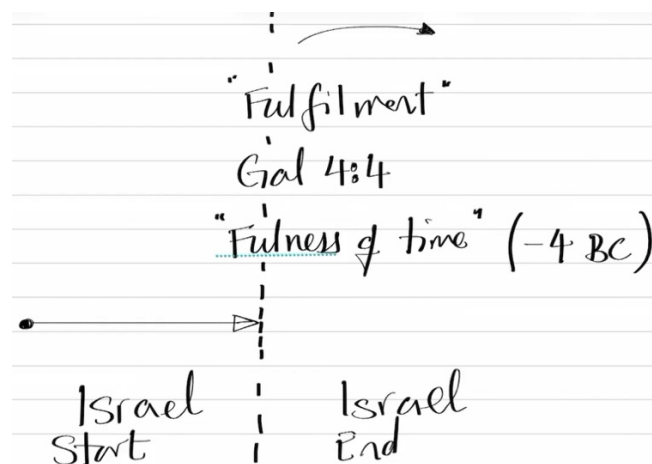 "Fulfilment"
Gal 4:4
"Fulness of time" (-4 BC)
Israel Israel
Start End